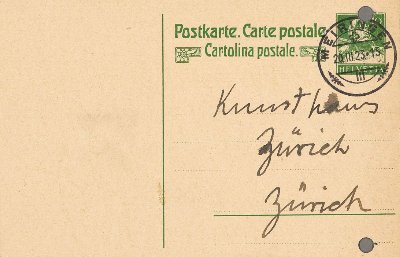 Postkarte. Carte postale.
Cartolina postale.
MEIRINGEN
20.III.23.-15
HELVETIA
Kunsthaus
Zürich
Zürich